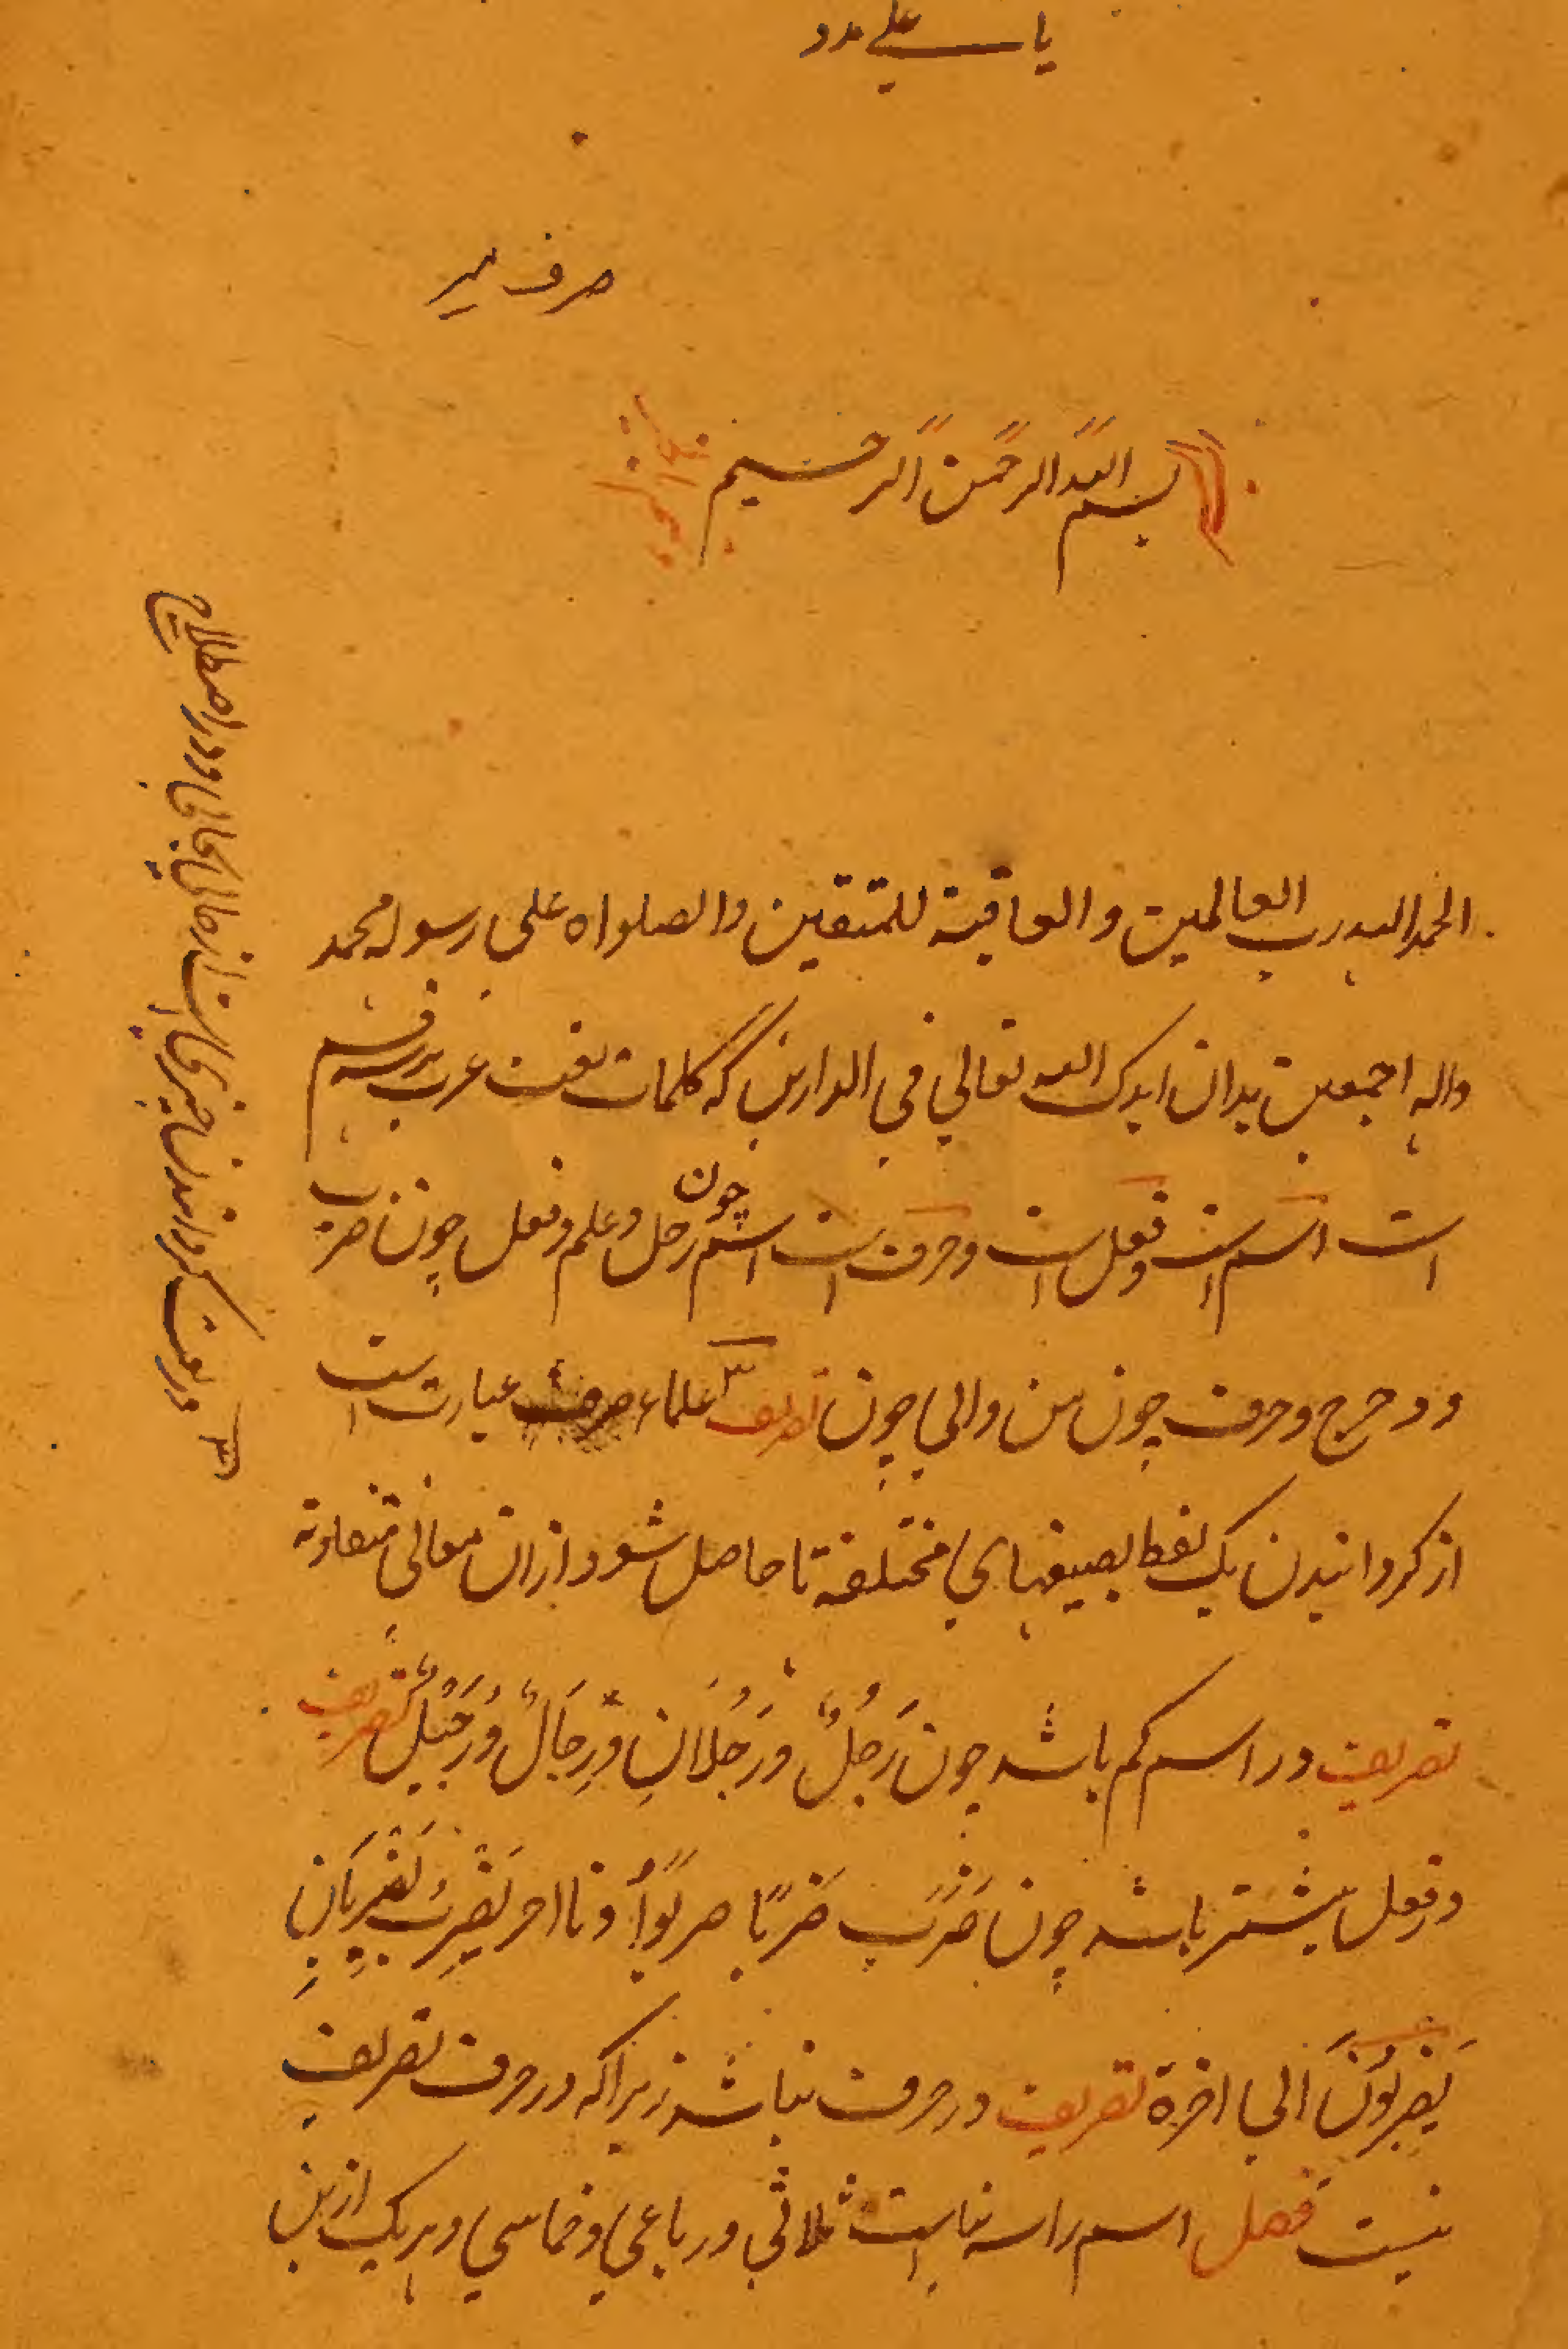 يا علي مدد
صرف مير
بسم الله الرحمن الرحيم
الحمد لله رب العالمين والعاقبة للمتقين والصلواه علی رسوله محمد
واله اجمعين بدان ايدک الله تعالي في الدارين که کلمات لغت عرب بر سه قسم
است اسم است وفعل است وحرف است اسم چون رجل وعلم وفعل چون ضرب
ودحرج وحرف چون من والي چون تصريف علماء صرف عبارت است
از کردانيدن يک لفظ بصيغهاي مختلفة تا حاصل شود ازان معاني متفاوته
تصريف در اسم کم باشد چون رَجُلٌ ورَجُلَانِ ورِجَالٌ ورُجَيْلٌ تصريف
در فعل بيشتر باشد چون ضَرَبَ ضَرَبَا ضَرَبُوا وتا اخر يَضْرِبُ يَضْرِبَانِ
يَضْرِبُونَ الي اخرة تصريف در حرف نباشد زيرا که در حرف تصريف
نيست فصل اسم را سه بناست ثلاثي ورباعي وخماسي وهر يک ازين